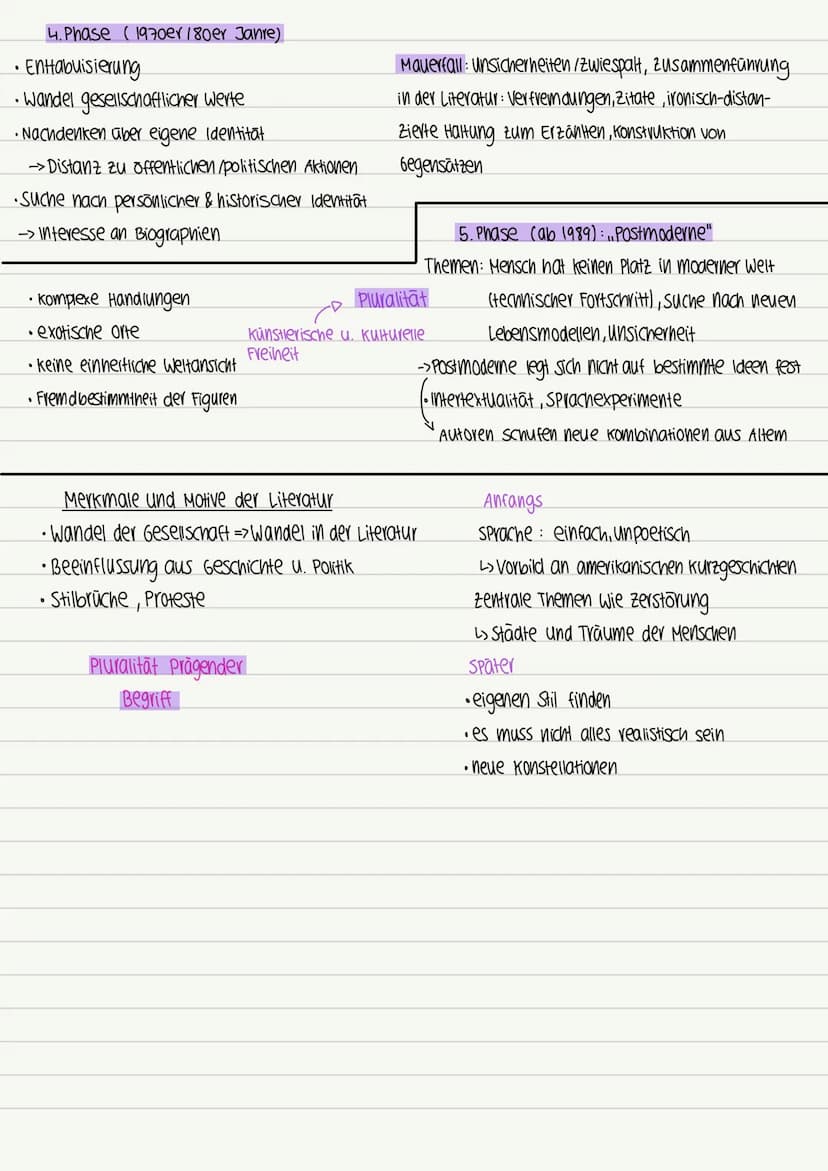 4. Phase (1970er / 80er Jahre)
• Enttabuisierung
• Wandel gesellschaftlicher Werte
• Nachdenken über eigene Identität
→ Distanz zu öffentlichen/politischen Aktionen
• Suche nach persönlicher & historischer Identität
→ Interesse an Biographien
Mauerfall: Unsicherheiten/Zwiespalt, Zusammenführung
in der Literatur: Verfremdungen, Zitate, ironisch-distan-
zierte Haltung zum Erzählten, Konstruktion von
Gegensätzen
5. Phase (ab 1989): „Postmoderne"
Themen: Mensch hat keinen Platz in moderner Welt
(technischer Fortschritt), Suche nach neuen
Lebensmodellen, Unsicherheit
-> Postmoderne legt sich nicht auf bestimmte Ideen fest
• Intertextualität, Sprachexperimente
Autoren schufen neue Kombinationen aus Altem
• komplexe Handlungen
• exotische Orte
• keine einheitliche Weltansicht
• Fremdbestimmtheit der Figuren
Pluralität
künstlerische u. kulturelle
Freiheit
Merkmale und Motive der Literatur
• Wandel der Gesellschaft => Wandel in der Literatur
• Beeinflussung aus Geschichte u. Politik
• Stilbrüche, Proteste
Pluralität prägender
Begriff
Anfangs
Sprache: einfach, unpoetisch
↳ Vorbild an amerikanischen Kurzgeschichten
zentrale Themen wie Zerstörung
↳ Städte und Träume der Menschen
Später
• eigenen Stil finden
• es muss nicht alles realistisch sein
• neue Konstellationen